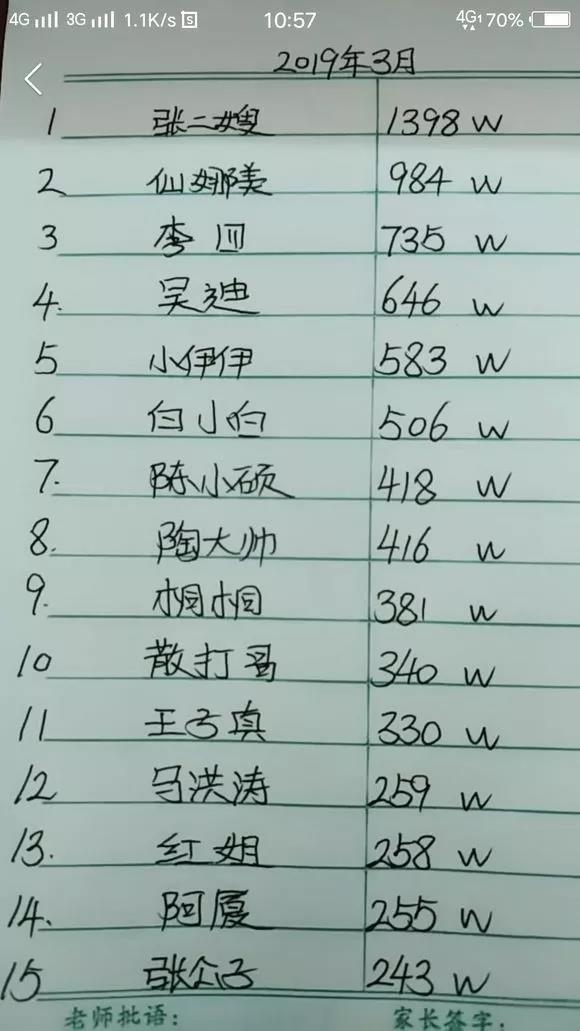 4G 3G 1.1K/s S 10:57 4G 70%
2019年3月
1 张二嫂 1398 W
2 仙娜美 984 W
3 李四 735 W
4. 吴迪 646 W
5 小伊伊 583 W
6 白小白 506 W
7. 陈小硕 418 W
8. 陶大帅 416 W
9. 桐桐 381 W
10 散打哥 340 W
11 王子真 330 W
12 马洪涛 259 W
13. 红姐 258 W
14. 阿厦 255 W
15 张公子 243 W
老师批语: 家长签字.